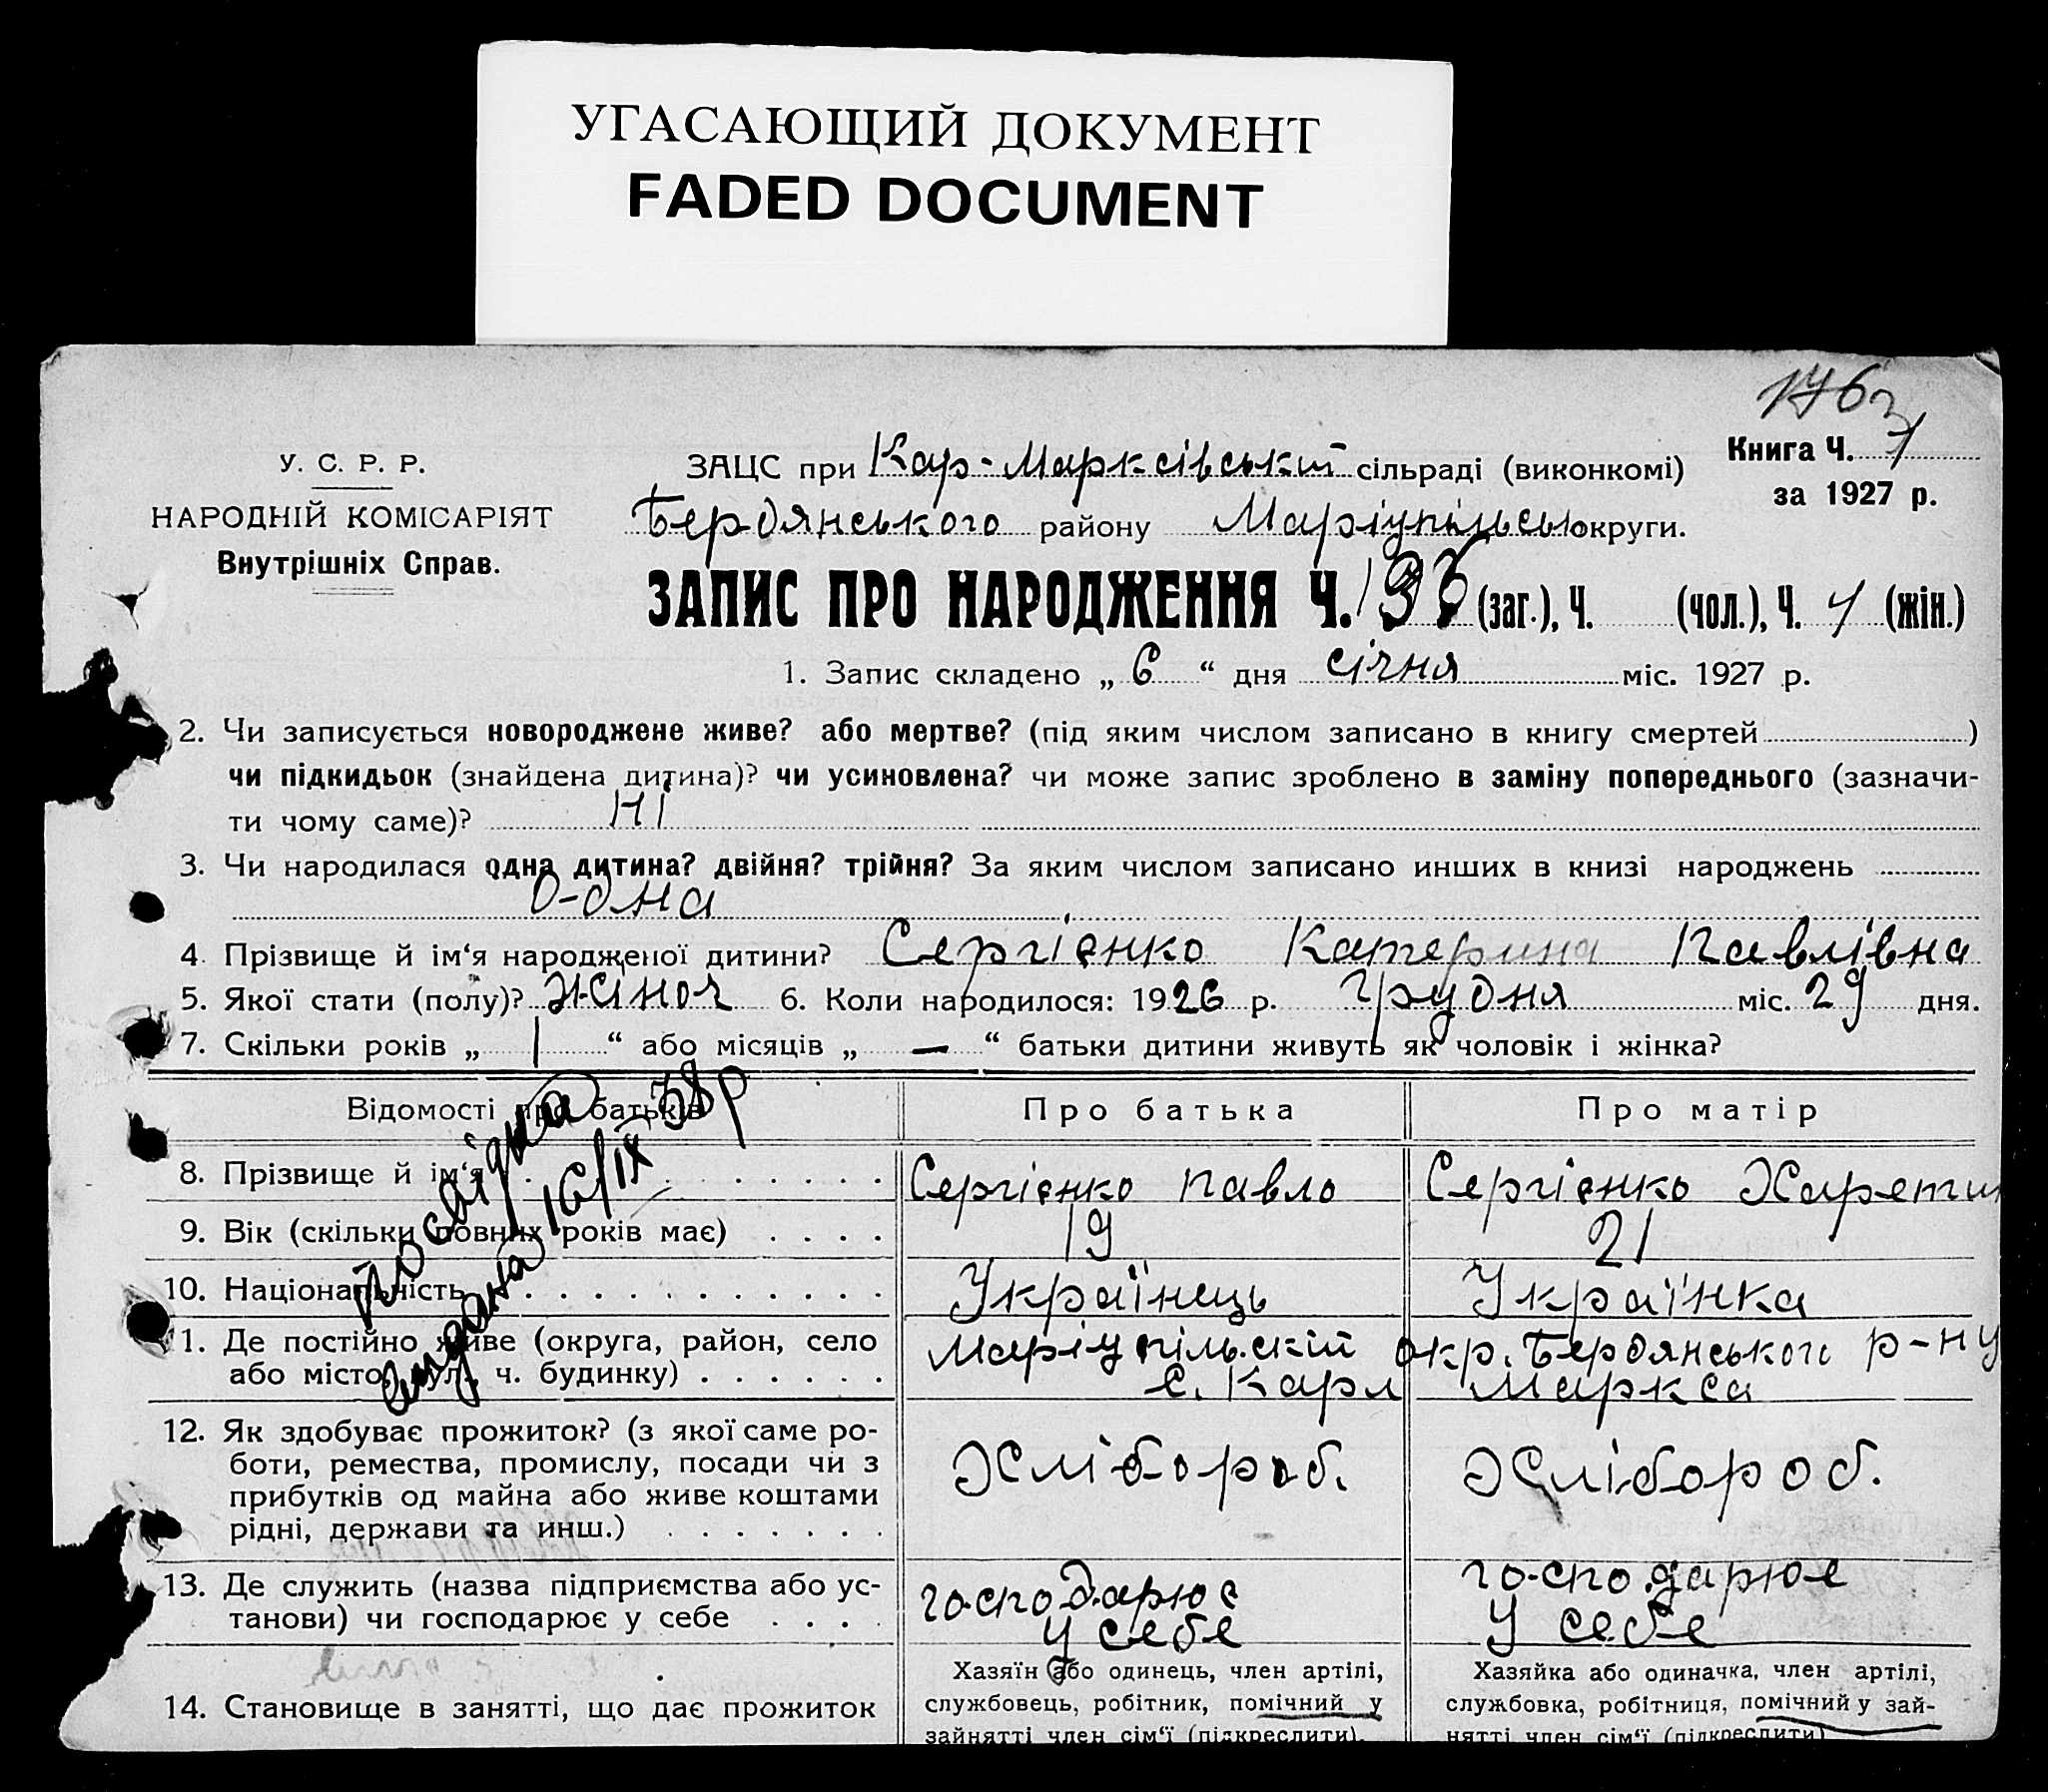 УГАСАЮЩИЙ ДОКУМЕНТ
FADED DOCUMENT
Книга Ч. 1
за 1927 р.
У. С. Р. Р.
НАРОДНІЙ КОМІСАРІЯТ
Внутрішніх Справ.
ЗАЦС при Кар-Марксівський сільраді (виконкомі)
Бердянського району Маріупільсь округи.
ЗАПИС ПРО НАРОДЖЕННЯ Ч. (заг.), Ч. (чол.), Ч. 1 (жін.)
1. Запис складено „ 6 “ дня січня міс. 1927 р.
2. Чи записується новороджене живе? або мертве? (під яким числом записано в книгу смертей )
чи підкидьок (знайдена дитина)? чи усиновлена? чи може запис зроблено в заміну попереднього (зазначи-
ти чому саме)? Ні
3. Чи народилася одна дитина? двійня? трійня? За яким числом записано инших в книзі народжень
О-дна
4. Прізвище й ім‘я народженої дитини? Сергієнко Катерина Павлівна
5. Якої стати (полу)? жіноч 6. Коли народилося: 1926 р. Грудня міс. 29 дня.
7. Скільки років „ 1 “ або місяців „ — “ батьки дитини живуть як чоловік і жінка?
Відомості про батьків Про батька Про матір
8. Прізвище й ім‘я Сергієнко Павло Сергієнко Харетин
9. Вік (скільки повних років має) 19 21
10. Національність Українець Українка
11. Де постійно живе (округа, район, село Маріупільскій окр. Бердянського р-ну
або місто, вул. ч. будинку) с. Карл Маркса
12. Як здобуває прожиток? (з якої саме ро-
боти, ремества, промислу, посади чи з Хлібороб. Хлібороб.
прибутків од майна або живе коштами
рідні, держави та инш.)
13. Де служить (назва підприємства або ус- господарює господарює
танови) чи господарює у себе у себе у себе
14. Становище в занятті, що дає прожиток
Хазяїн або одинець, член артілі,
службовець, робітник, помічний у
зайнятті член сім‘ї (підкреслити).
Хазяйка або одиначка, член артілі,
службовка, робітниця, помічний у зай-
нятті член сім‘ї (підкреслити)
посвідка
видана 16/IX 38р